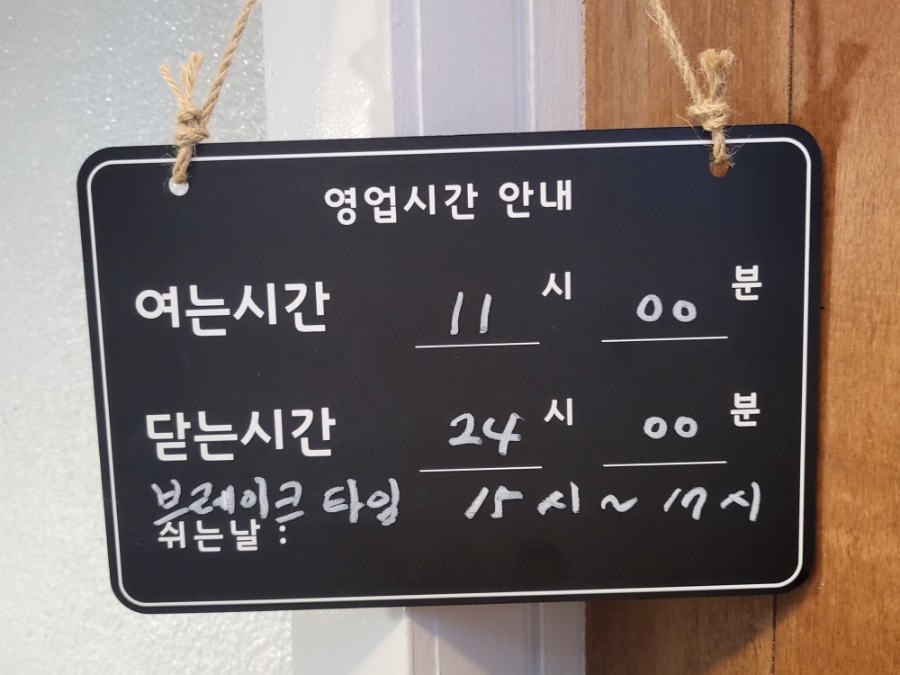 영업시간 안내
여는시간 11 시 00 분
닫는시간 24 시 00 분
브레이크 타임 15시 ~ 17시
쉬는날 :